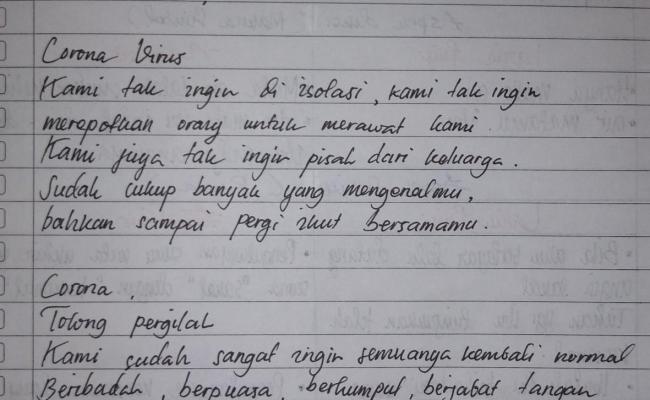 Corona Virus
Kami tak ingin di isolasi, kami tak ingin
merepotkan orang untuk merawat kami.
Kami juga tak ingin pisah dari keluarga.
Sudah cukup banyak yang mengenalmu,
bahkan sampai pergi ikut bersamamu.
Corona,
Tolong pergilah
Kami sudah sangat ingin semuanya kembali normal
Beribadah, berpuasa, berkumpul, berjabat tangan